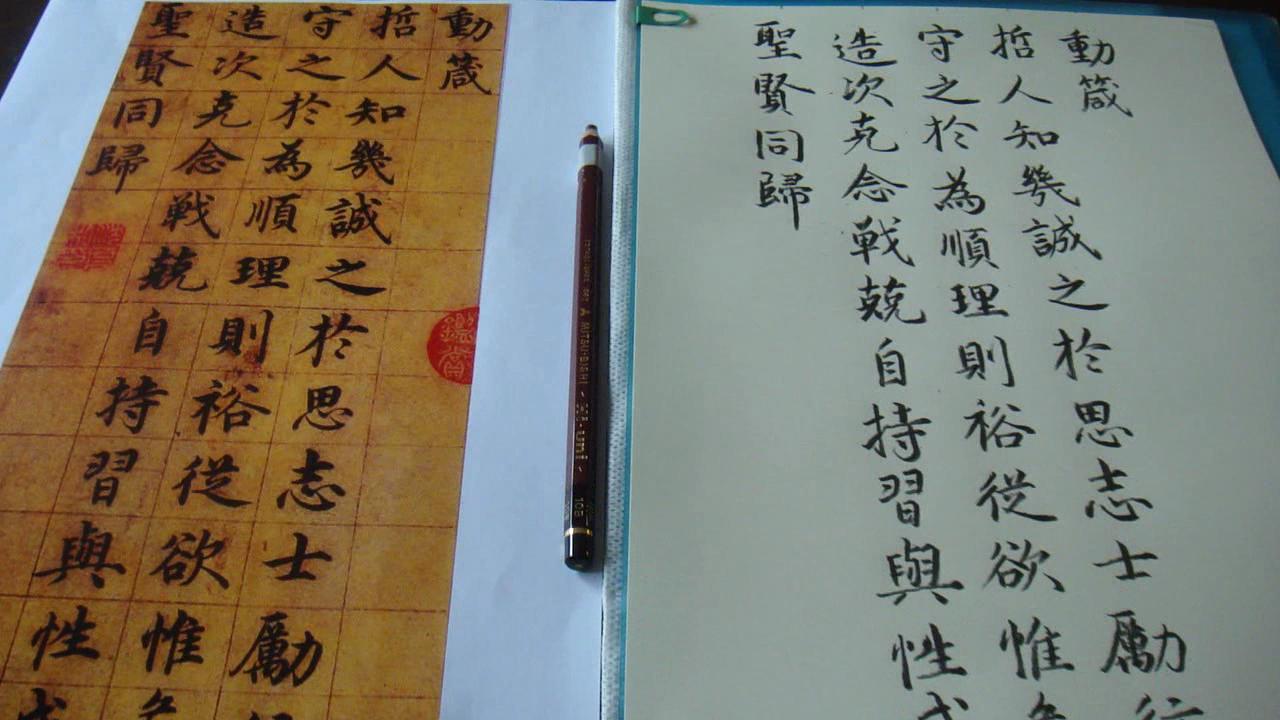 動箴
哲人知幾誠之於思志士勵
守之於為順理則裕從欲惟
造次克念戰兢自持習與性
聖賢同歸
MITSU-BISHI Hi-uni 10B
動箴
哲人知幾誠之於思志士勵行
守之於為順理則裕從欲惟
造次克念戰兢自持習與性
聖賢同歸